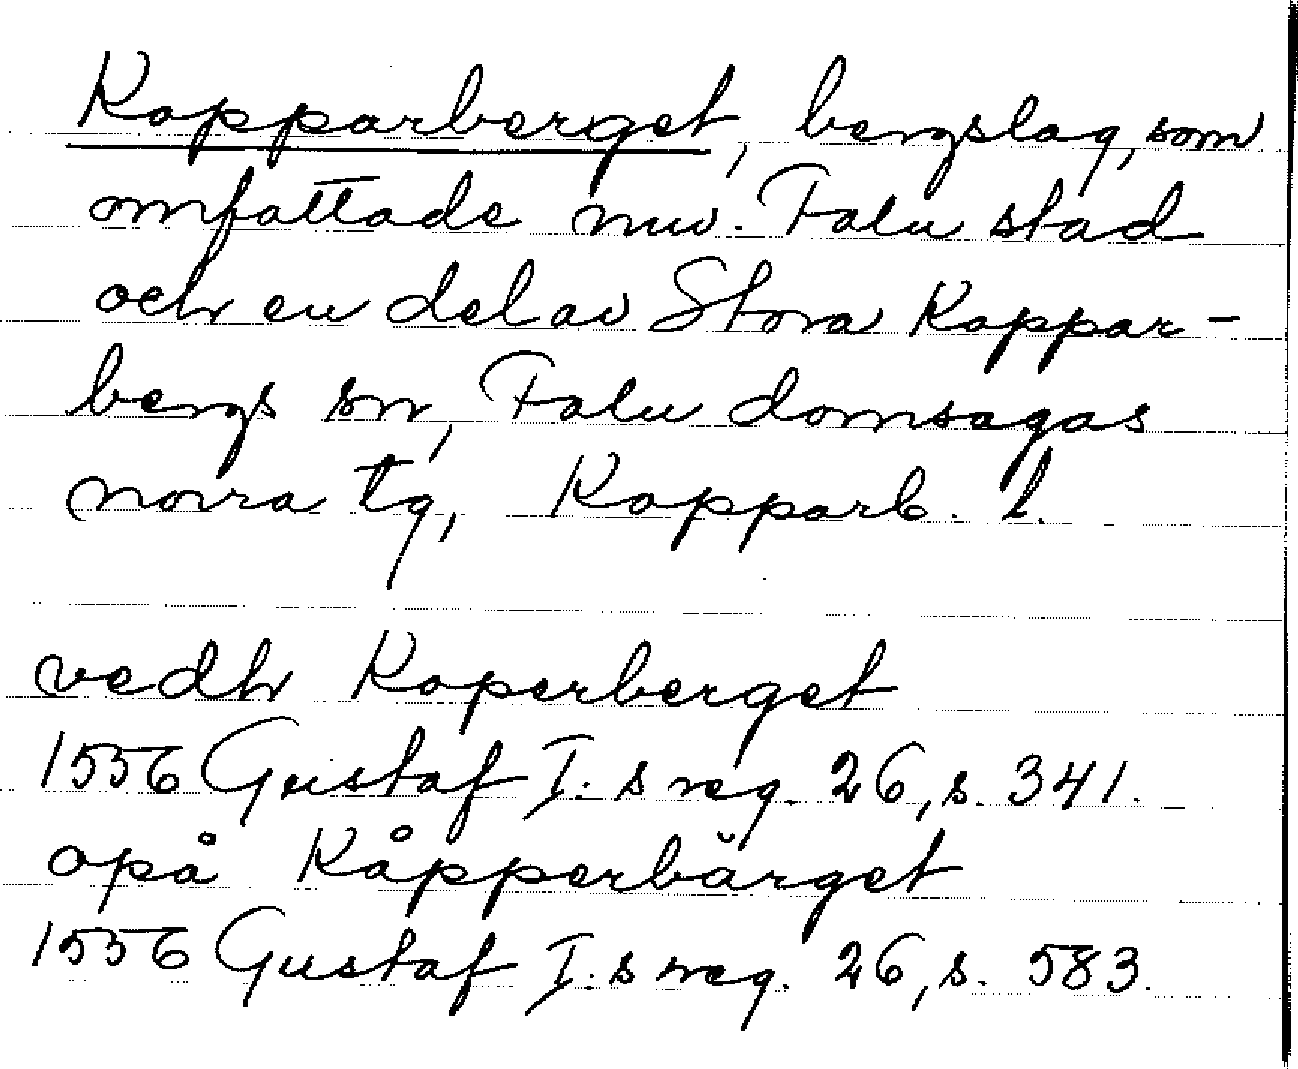 Kopparberget, bergslag, som
omfattade nuv. Falu stad
och en del av Stora Koppar-
bergs sn, Falu domsagas
norra tg, Kopparb. l.
vedh Koperberget
1556 Gustaf I:s reg. 26, s. 341.
opå Kåpperbärget
1556 Gustaf I:s reg. 26, s. 583.